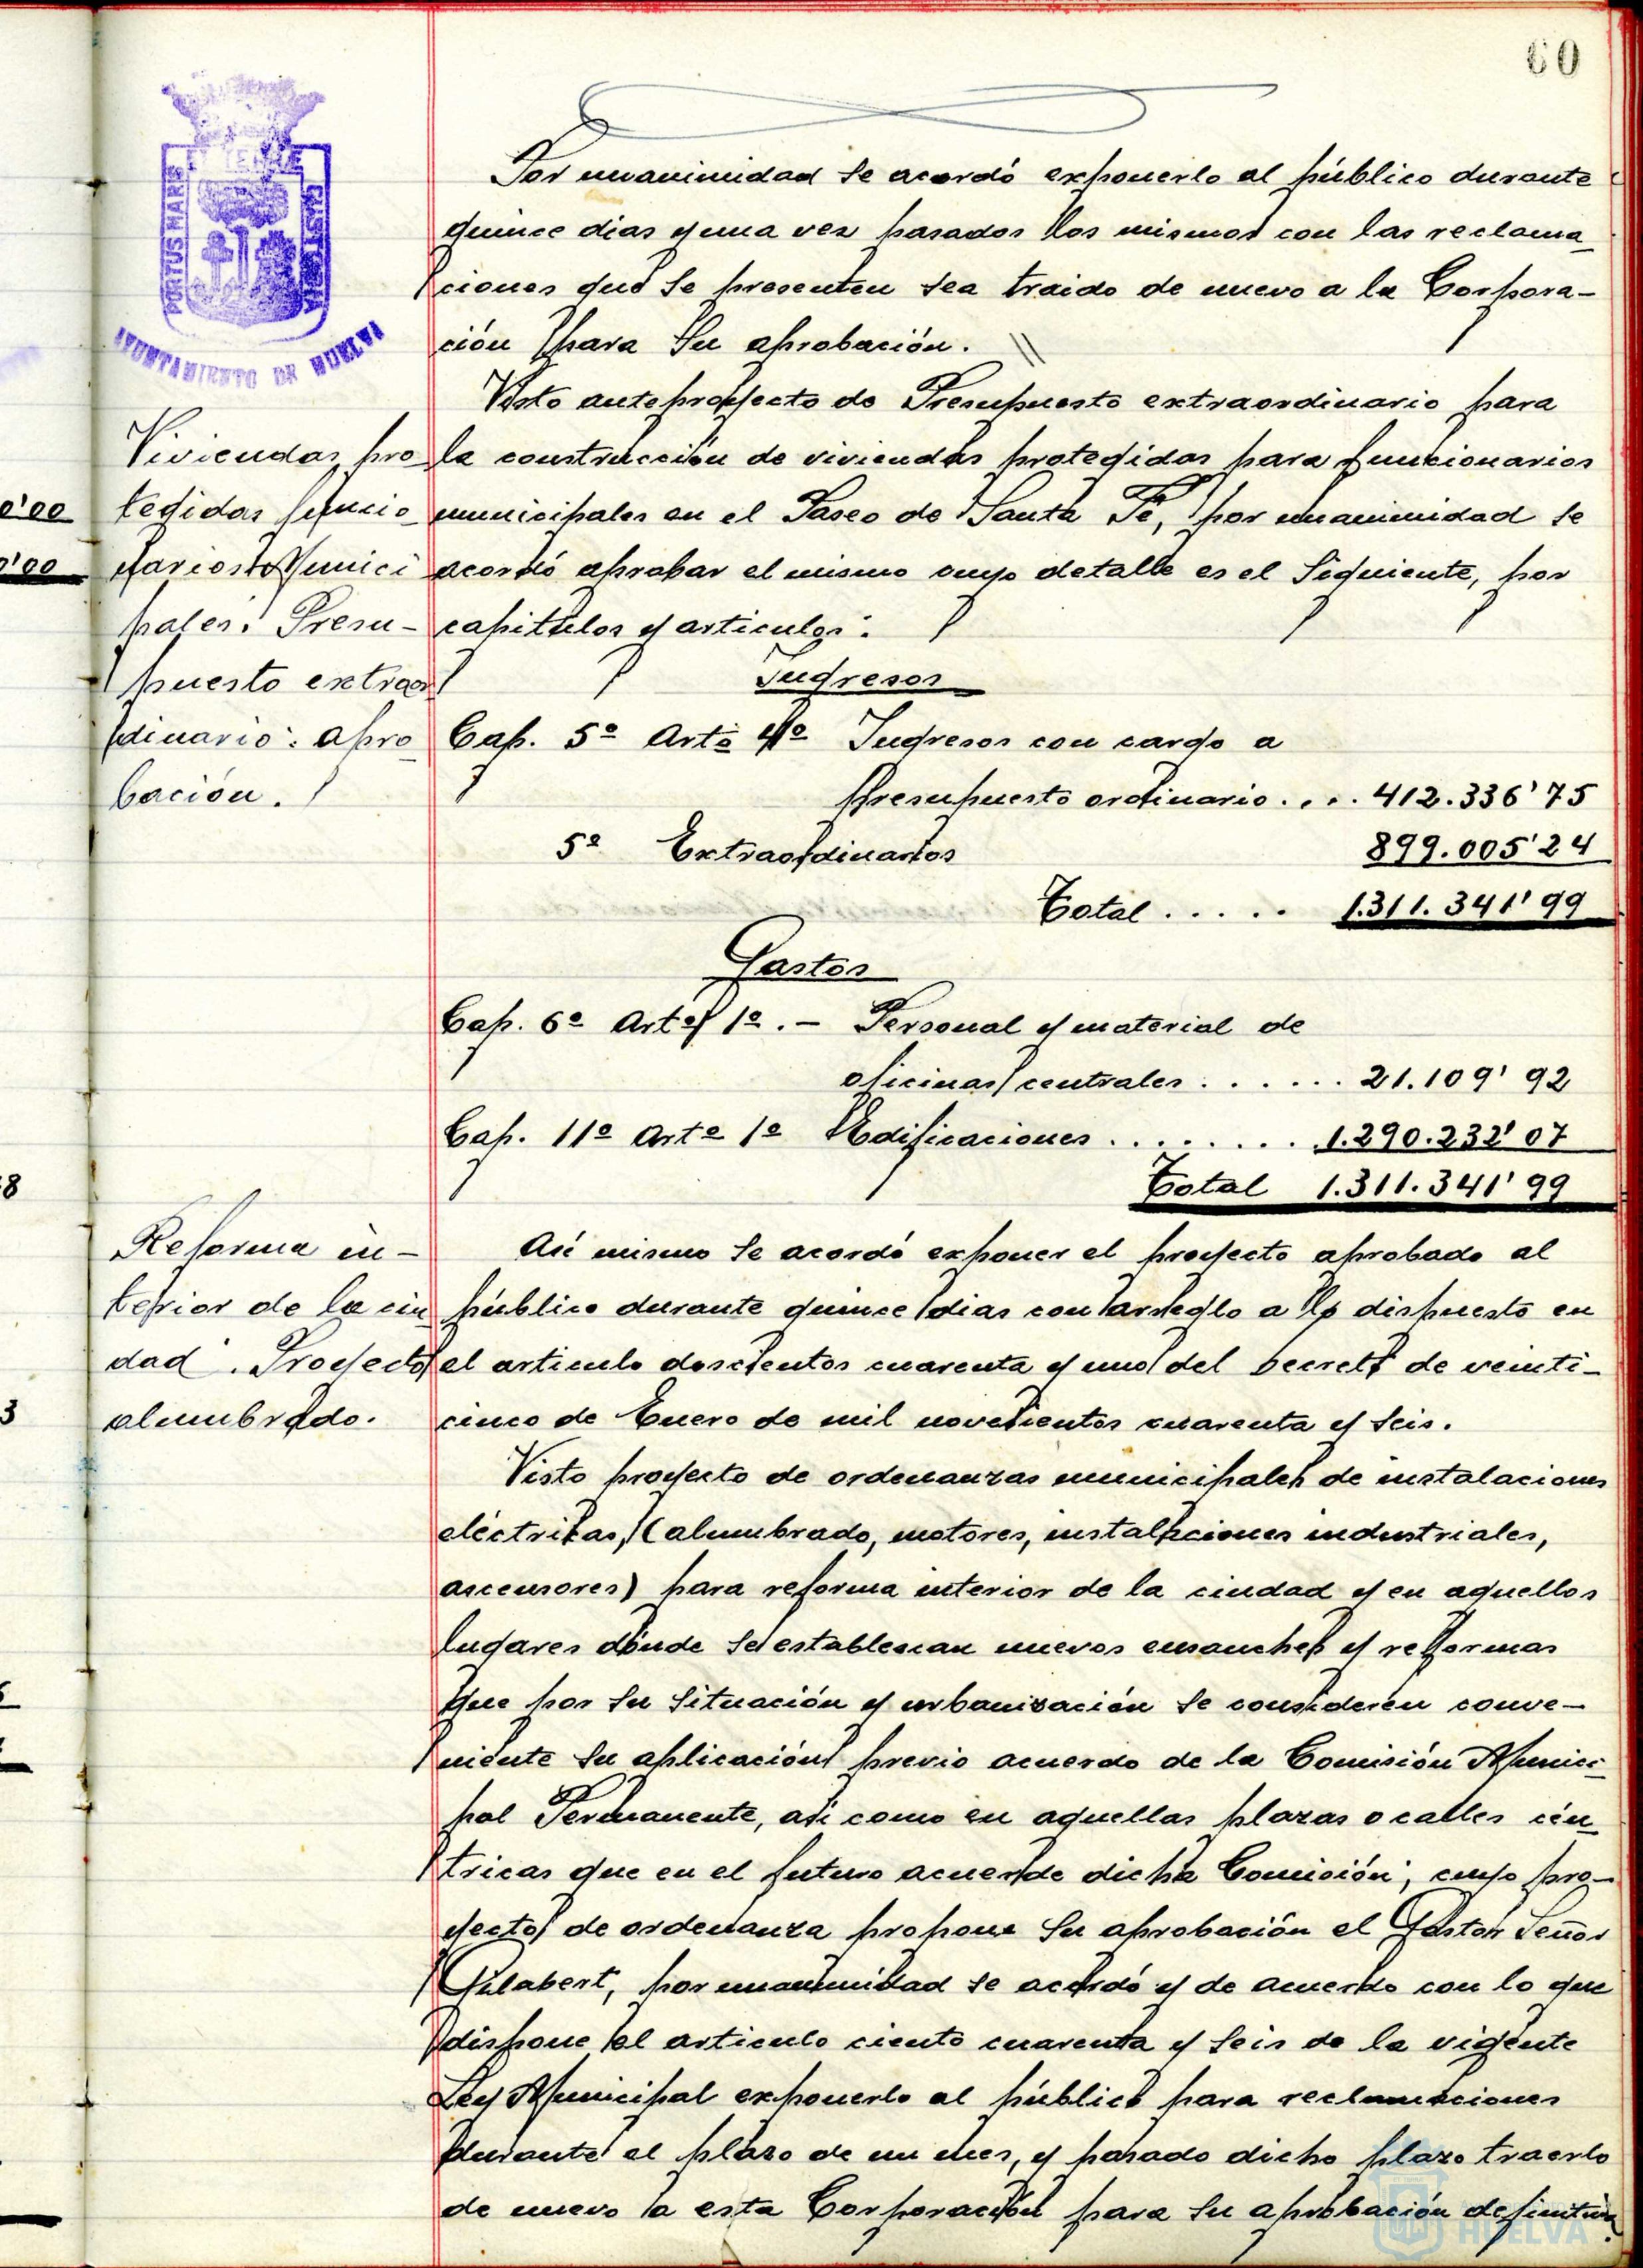 60
PORTUS MARIS
ET TERRE
CUSTODIA
AYUNTAMIENTO DE HUELVA
Por unanimidad se acordó exponerlo al público durante
quince dias y una vez pasados los mismos con las reclama
ciones que se presenten sea traido de nuevo a la Corpora-
ción para su aprobación.
Viviendas pro
tegidas funcio
narios Munici
pales: Presu-
puesto extraor
dinario: apro
bación.
Visto anteproyecto de Presupuesto extraordinario para
la construcción de viviendas protegidas para funcionarios
municipales en el Paseo de Santa Fé, por unanimidad se
acordó aprobar el mismo cuyo detalle es el siguiente, por
capitulos y articulos:
Ingresos
Cap. 5º Artº 4º Ingresos con cargo a
presupuesto ordinario . . . . 412.336'75
5º Extraordinarios 899.005'24
Total . . . . . 1.311.341'99
Gastos
Cap. 6º Artº 1º.- Personal y material de
oficinas centrales . . . . . . 21.109'92
Cap. 11º Artº 1º Edificaciones . . . . . . . . 1.290.232'07
Total 1.311.341'99
Reforma in-
terior de la ciu
dad. Proyecto
alumbrado.
Asi mismo se acordó exponer el proyecto aprobado al
público durante quince dias con arreglo a lo dispuesto en
el articulo doscientos cuarenta y uno del Decreto de veinti-
cinco de Enero de mil novecientos cuarenta y seis.
Visto proyecto de ordenanzas municipales de instalaciones
eléctricas, (alumbrado, motores, instalaciones industriales,
ascensores) para reforma interior de la ciudad y en aquellos
lugares donde se establezcan nuevos ensanches y reformas
que por su situación y urbanización se consideren conve-
niente su aplicación previo acuerdo de la Comisión Munici
pal Permanente, asi como en aquellas plazas o calles cén
tricas que en el futuro acuerde dicha Comisión; cuyo pro-
yecto de ordenanza propone su aprobación el Gestor Señor
Gilabert, por unanimidad se acordó y de acuerdo con lo que
dispone el articulo ciento cuarenta y seis de la vigente
Ley Municipal exponerlo al público para reclamaciones
durante el plazo de un mes, y pasado dicho plazo traerlo
de nuevo a esta Corporación para su aprobación definitiva.
HUELVA
0'00
0'00
8
3